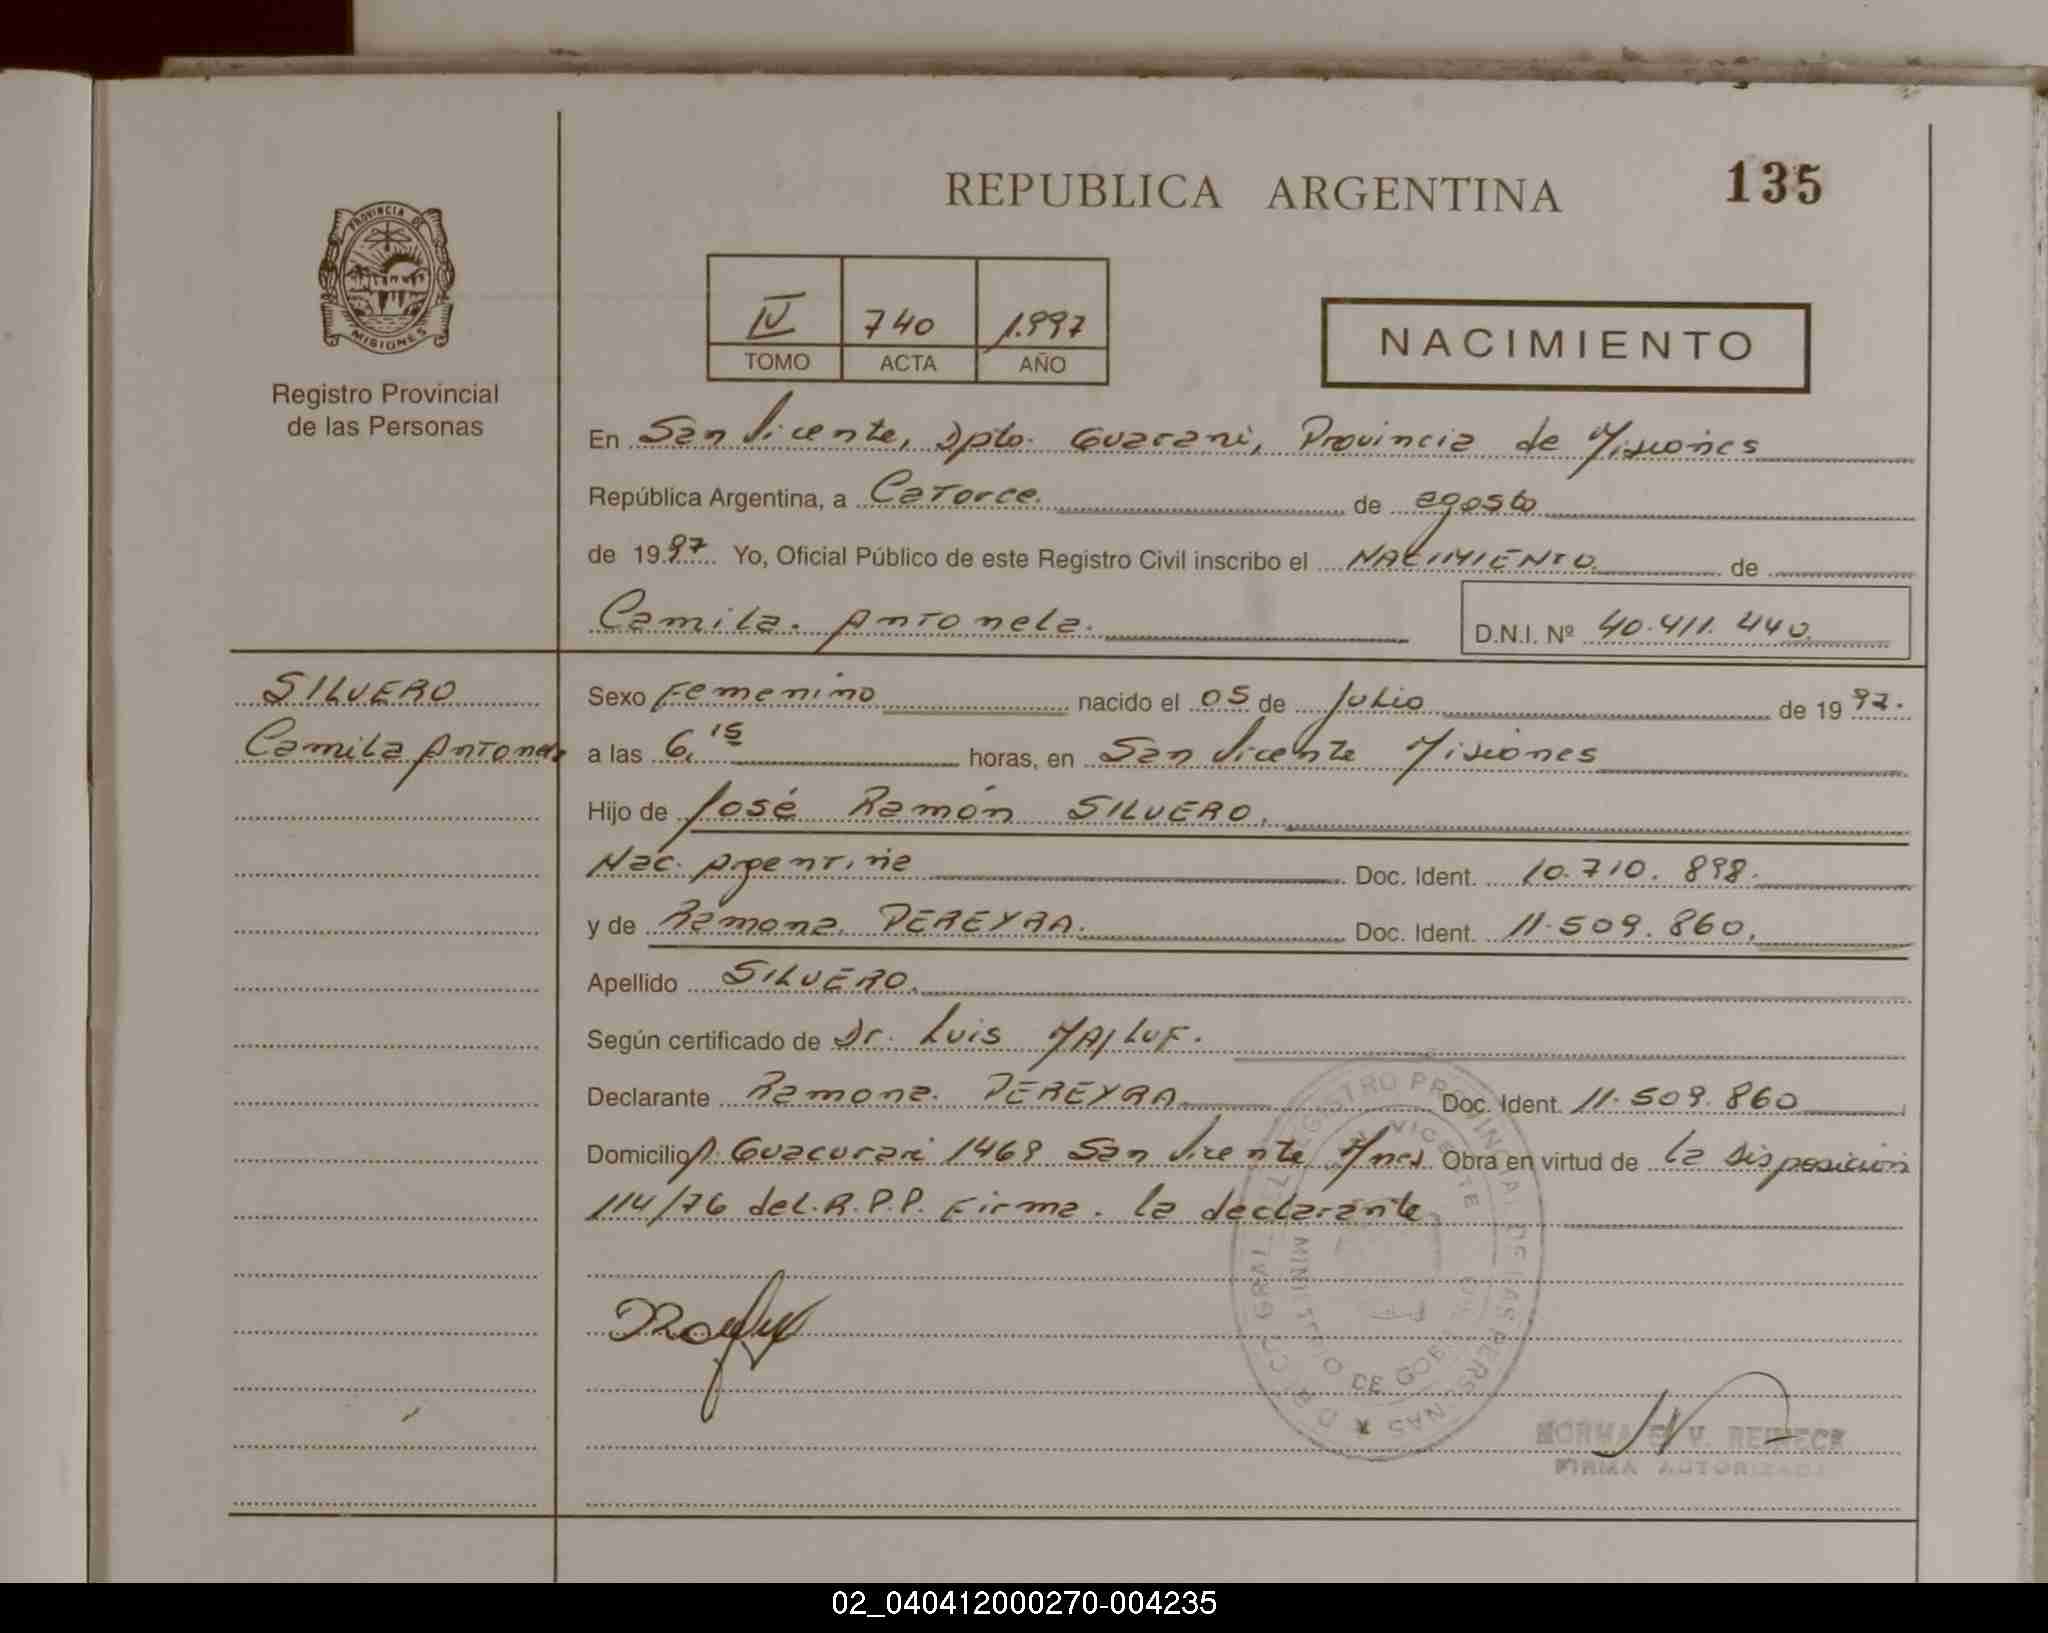 REPUBLICA ARGENTINA
135
PROVINCIA DE
MISIONES
Registro Provincial
de las Personas
IV 740 1.997
TOMO ACTA AÑO
NACIMIENTO
En San Vicente, Dpto. Guarani, Provincia de Misiones
República Argentina, a Catorce. de agosto
de 1997 Yo, Oficial Público de este Registro Civil inscribo el NACIMIENTO de
Camila. Antonela.
D.N.I. Nº 40.411.440
SILVERO
Camila Antonela
Sexo Femenino nacido el 05 de Julio de 1997.
a las 6,15 horas, en San Vicente Misiones
Hijo de José Ramón SILVERO.
Nac. Argentina Doc. Ident. 10.710.898.
y de Ramona PEREYRA. Doc. Ident. 11.509.860.
Apellido SILVERO.
Según certificado de Dr. Luis
Declarante Ramona. PEREYRA Doc. Ident. 11.509.860
Domicilio Guacurari 1469 San Vicente Mnes Obra en virtud de la disposición
114/76 del.R.P.P. Firma. la declarante
NORMA E. V. REINECK
FIRMA AUTORIZADA
02_040412000270-004235